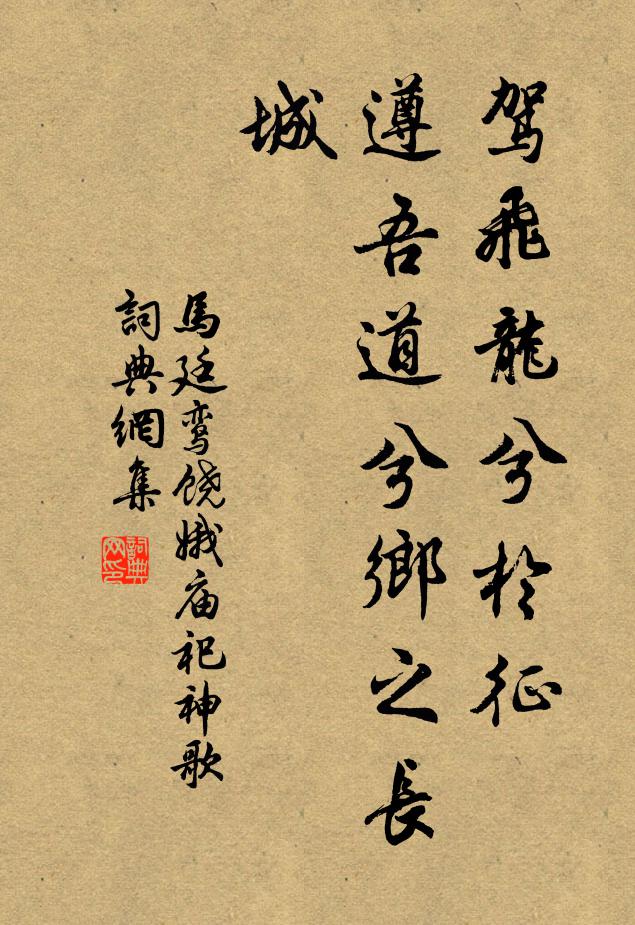 駕飛龍兮於征
遵吾道兮鄉之長
城
馬廷鸾饶娥庙祀神歌
詞典網集
詞典网印